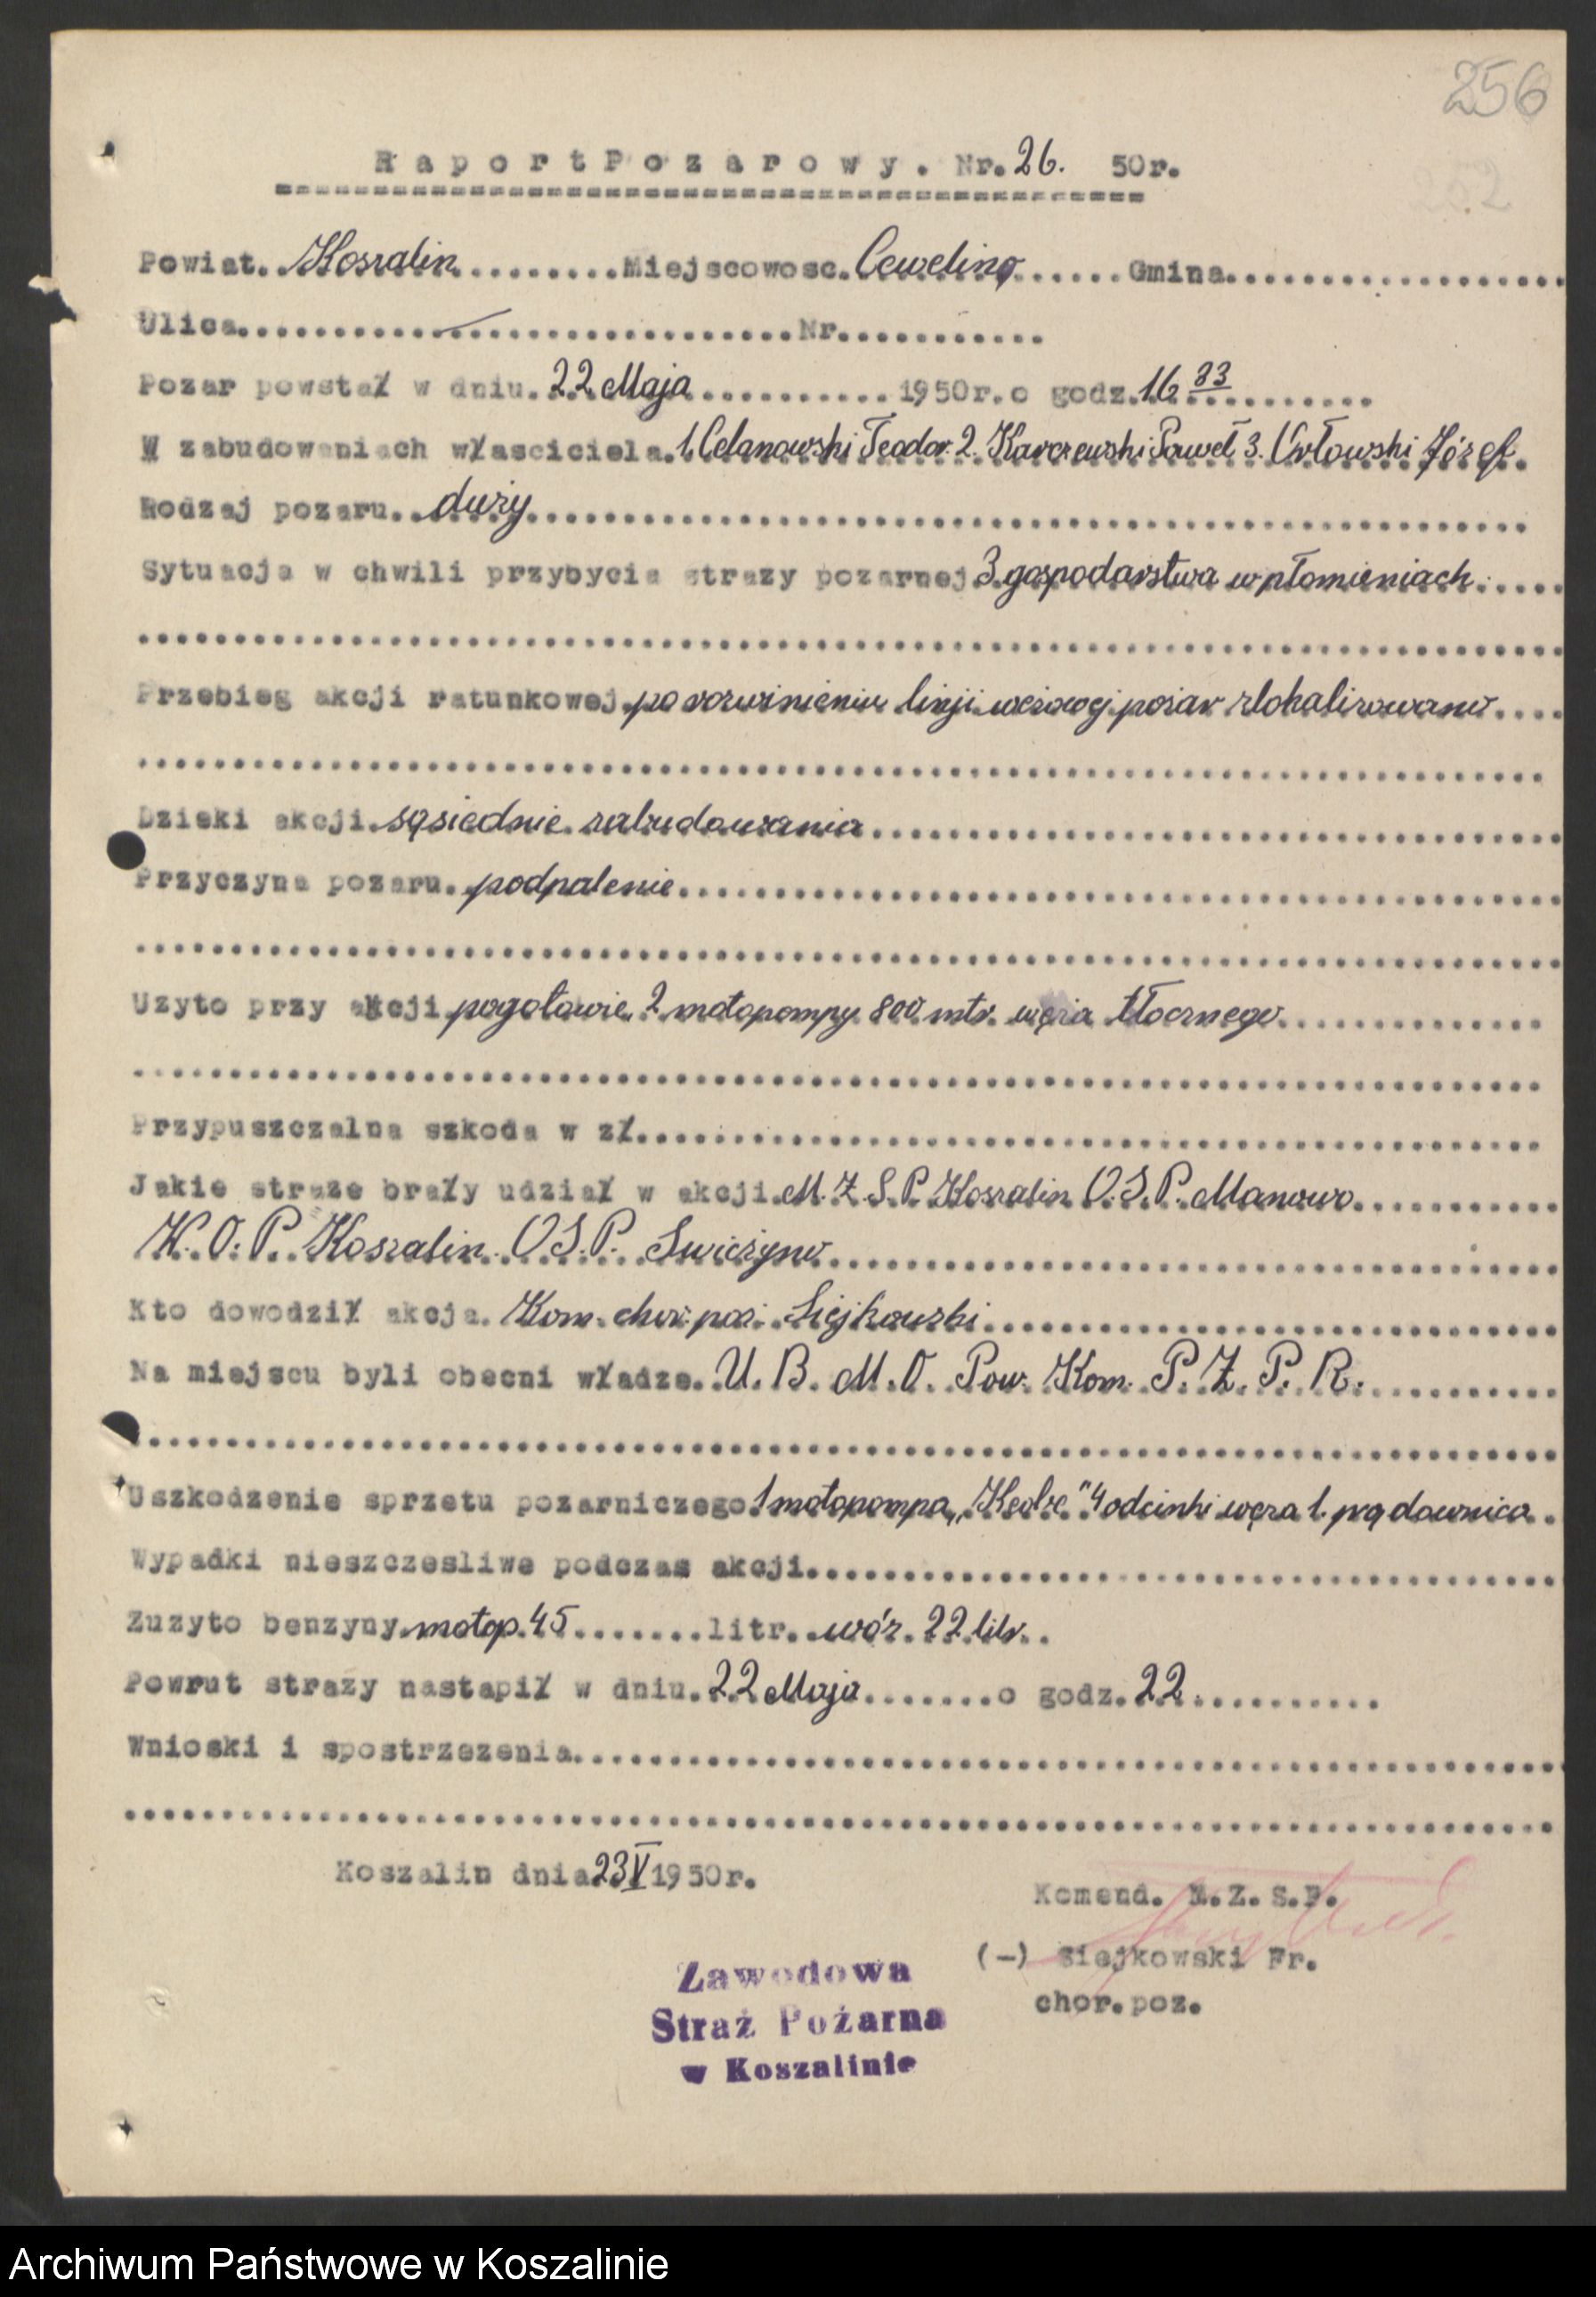 256
Raport Pozarowy. Nr. 26. 50r.
Powiat. Koszalin Miejscowosc. Cewelino Gmina
Ulica Nr
Pozar powstał w dniu. 22 Maja 1950r. o godz. 16 33
W zabudowaniach własciciela. 1. Celanowski Teodor 2. Karczewski Paweł 3. Orłowski Józef.
Rodzaj pozaru. duży
Sytuacja w chwili przybycia strazy pozarnej 3 gospodarstwa w płomieniach
Przebieg akcji ratunkowej. po rozwinieniu linji wężowej pożar zlokalizowano
Dzieki akcji. sąsiednie zabudowania
Przyczyna pozaru. podpalenie
Uzyto przy akcji pogotowie, 2 motopompy 800 mtr. węża tłocznego
Przypuszczalna szkoda w zł.
Jakie straze brały udział w akcji. M. Z. S. P. Koszalin O. S. P. Manowo
K. O. P. Koszalin O S. P. Swieżyno
Kto dowodził akcja. Kom. chor. poż. Siejkowski
Na miejscu byli obecni władze. U. B. M. O. Pow. Kom. P. Z. P. R.
Uszkodzenie sprzetu pozarniczego 1 motopompa 4 odcinki węża 1. prądownica.
Wypadki nieszczesliwe podczas akcji
Zuzyto benzyny motop. 45 litr. wóz. 22 litr.
Powrut strazy nastapił w dniu. 22 Maja o godz. 22
Wnioski i spostrzezenia
Koszalin dnia 23 V 1950r.
Komend. M.Z.S.P.
(-) Siejkowski Fr.
chor.poz.
Zawodowa
Straż Pożarna
w Koszalinie
Archiwum Państwowe w Koszalinie